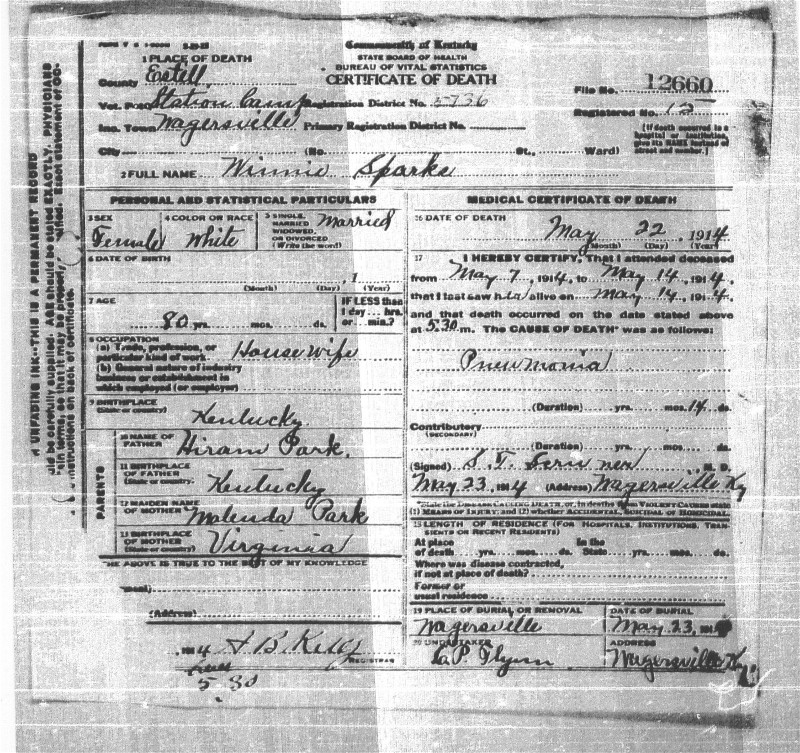 Commonwealth of Kentucky
STATE BOARD OF HEALTH
BUREAU OF VITAL STATISTICS
CERTIFICATE OF DEATH
File No. 12660
Registered No. 12
(If death occurred in a hospital or institution, give its NAME instead of street and number.)
1 PLACE OF DEATH
County Estell
Vot. Station Camp Registration District No. 5736
Inc. Town Wagersville Primary Registration District No.
City (No. St., Ward)
2 FULL NAME Winnie Sparks
PERSONAL AND STATISTICAL PARTICULARS
3 SEX Female
4 COLOR OR RACE White
5 SINGLE, MARRIED WIDOWED, OR DIVORCED (Write the word) Married
6 DATE OF BIRTH
, 1
(Month) (Day) (Year)
7 AGE
80 yrs. mos. ds.
IF LESS than
1 day hrs.
or min.?
8 OCCUPATION
(a) Trade, profession, or
particular kind of work House wife
(b) General nature of industry
business or establishment in
which employed (or employer)
9 BIRTHPLACE
(State or country) Kentucky
PARENTS
10 NAME OF FATHER Hiram Park.
11 BIRTHPLACE OF FATHER (State or country) Kentucky
12 MAIDEN NAME OF MOTHER Malinda Park
13 BIRTHPLACE OF MOTHER (State or country) Virginia
HE ABOVE IS TRUE TO THE BEST OF MY KNOWLEDGE
mant)
(Address)
191 4
REGISTRAR
5 30
MEDICAL CERTIFICATE OF DEATH
16 DATE OF DEATH
May 22, 1914
(Month) (Day) (Year)
17 I HEREBY CERTIFY, That I attended deceased
from May 7, 1914, to May 14, 1914,
that I last saw her alive on May 14, 1914,
and that death occurred on the date stated above
at 5:30 m. The CAUSE OF DEATH* was as follows:
Pneumonia
(Duration) yrs. mos. 14 ds.
Contributory
(SECONDARY)
(Duration) yrs. mos. ds.
(Signed) S. T. M. D.
May 23, 1914 (Address) Wagersville Ky
*State the DISEASE CAUSING DEATH, or, in deaths from VIOLENT CAUSES state
(1) MEANS OF INJURY; and (2) whether ACCIDENTAL, SUICIDAL or HOMICIDAL.
18 LENGTH OF RESIDENCE (FOR HOSPITALS, INSTITUTIONS, TRANSIENTS OR RECENT RESIDENTS)
At place In the
of death yrs. mos. ds. State yrs. mos. ds.
Where was disease contracted,
if not at place of death?
Former or
usual residence
19 PLACE OF BURIAL OR REMOVAL Wagersville
DATE OF BURIAL May 23, 1914
20 UNDERTAKER P. Flynn
ADDRESS Wagersville Ky.
UNFADING INK--THIS IS A PERMANENT RECORD
uld be carefully supplied. AGE should be stated EXACTLY. PHYSICIANS
ain terms, so that it may be properly
instructions on back of certificate.